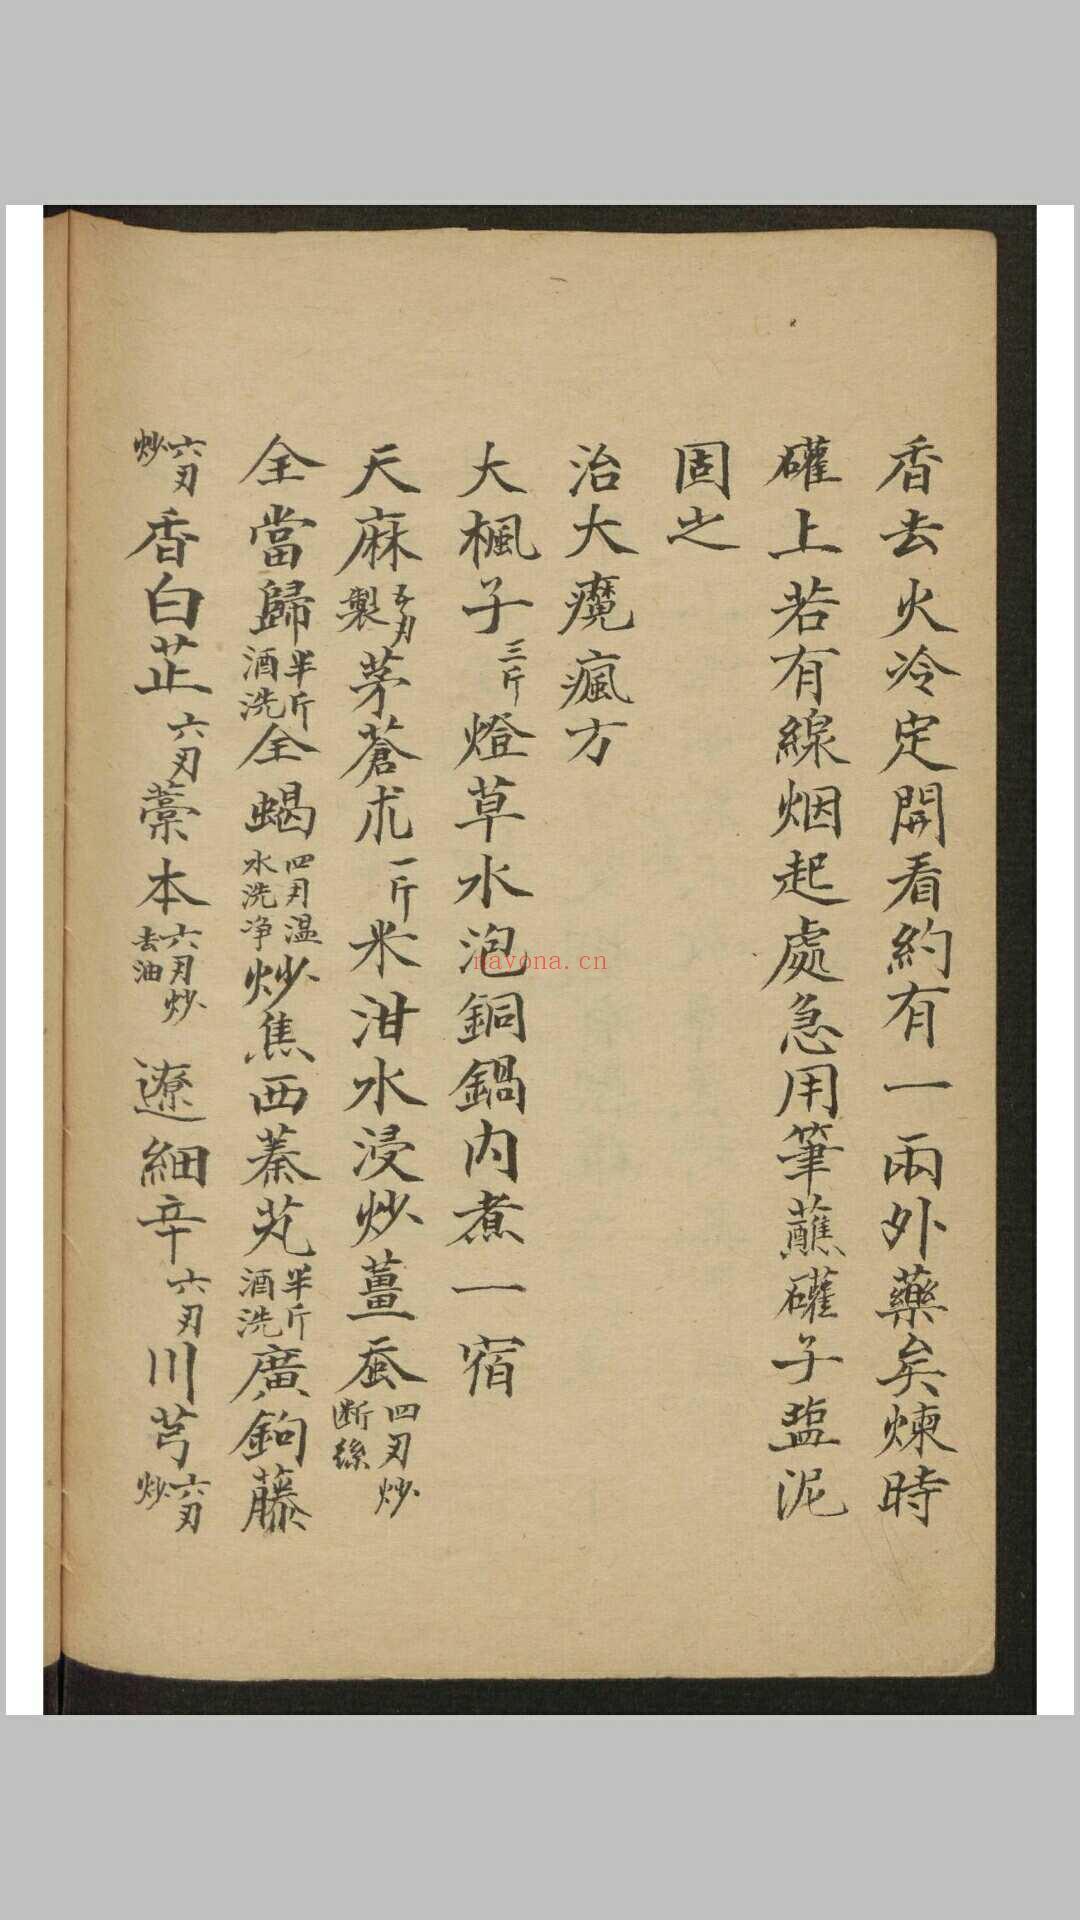 香去火冷定開看約有一兩外藥矣煉時
礶上若有線烟起處急用筆蘸礶子盐泥
固之
治大癘瘋方
大楓子三斤燈草水泡銅鍋内煮一宿
天麻五刄製茅蒼朮一斤米泔水浸炒薑蚕四刄炒断絲
全當歸半斤酒洗全蝎四刄温水洗净炒焦西蓁艽半斤酒洗廣鉤藤
六刄炒香白芷六刄藁本六刄炒去油遼細辛六刄川芎六刄炒
nayona.cn